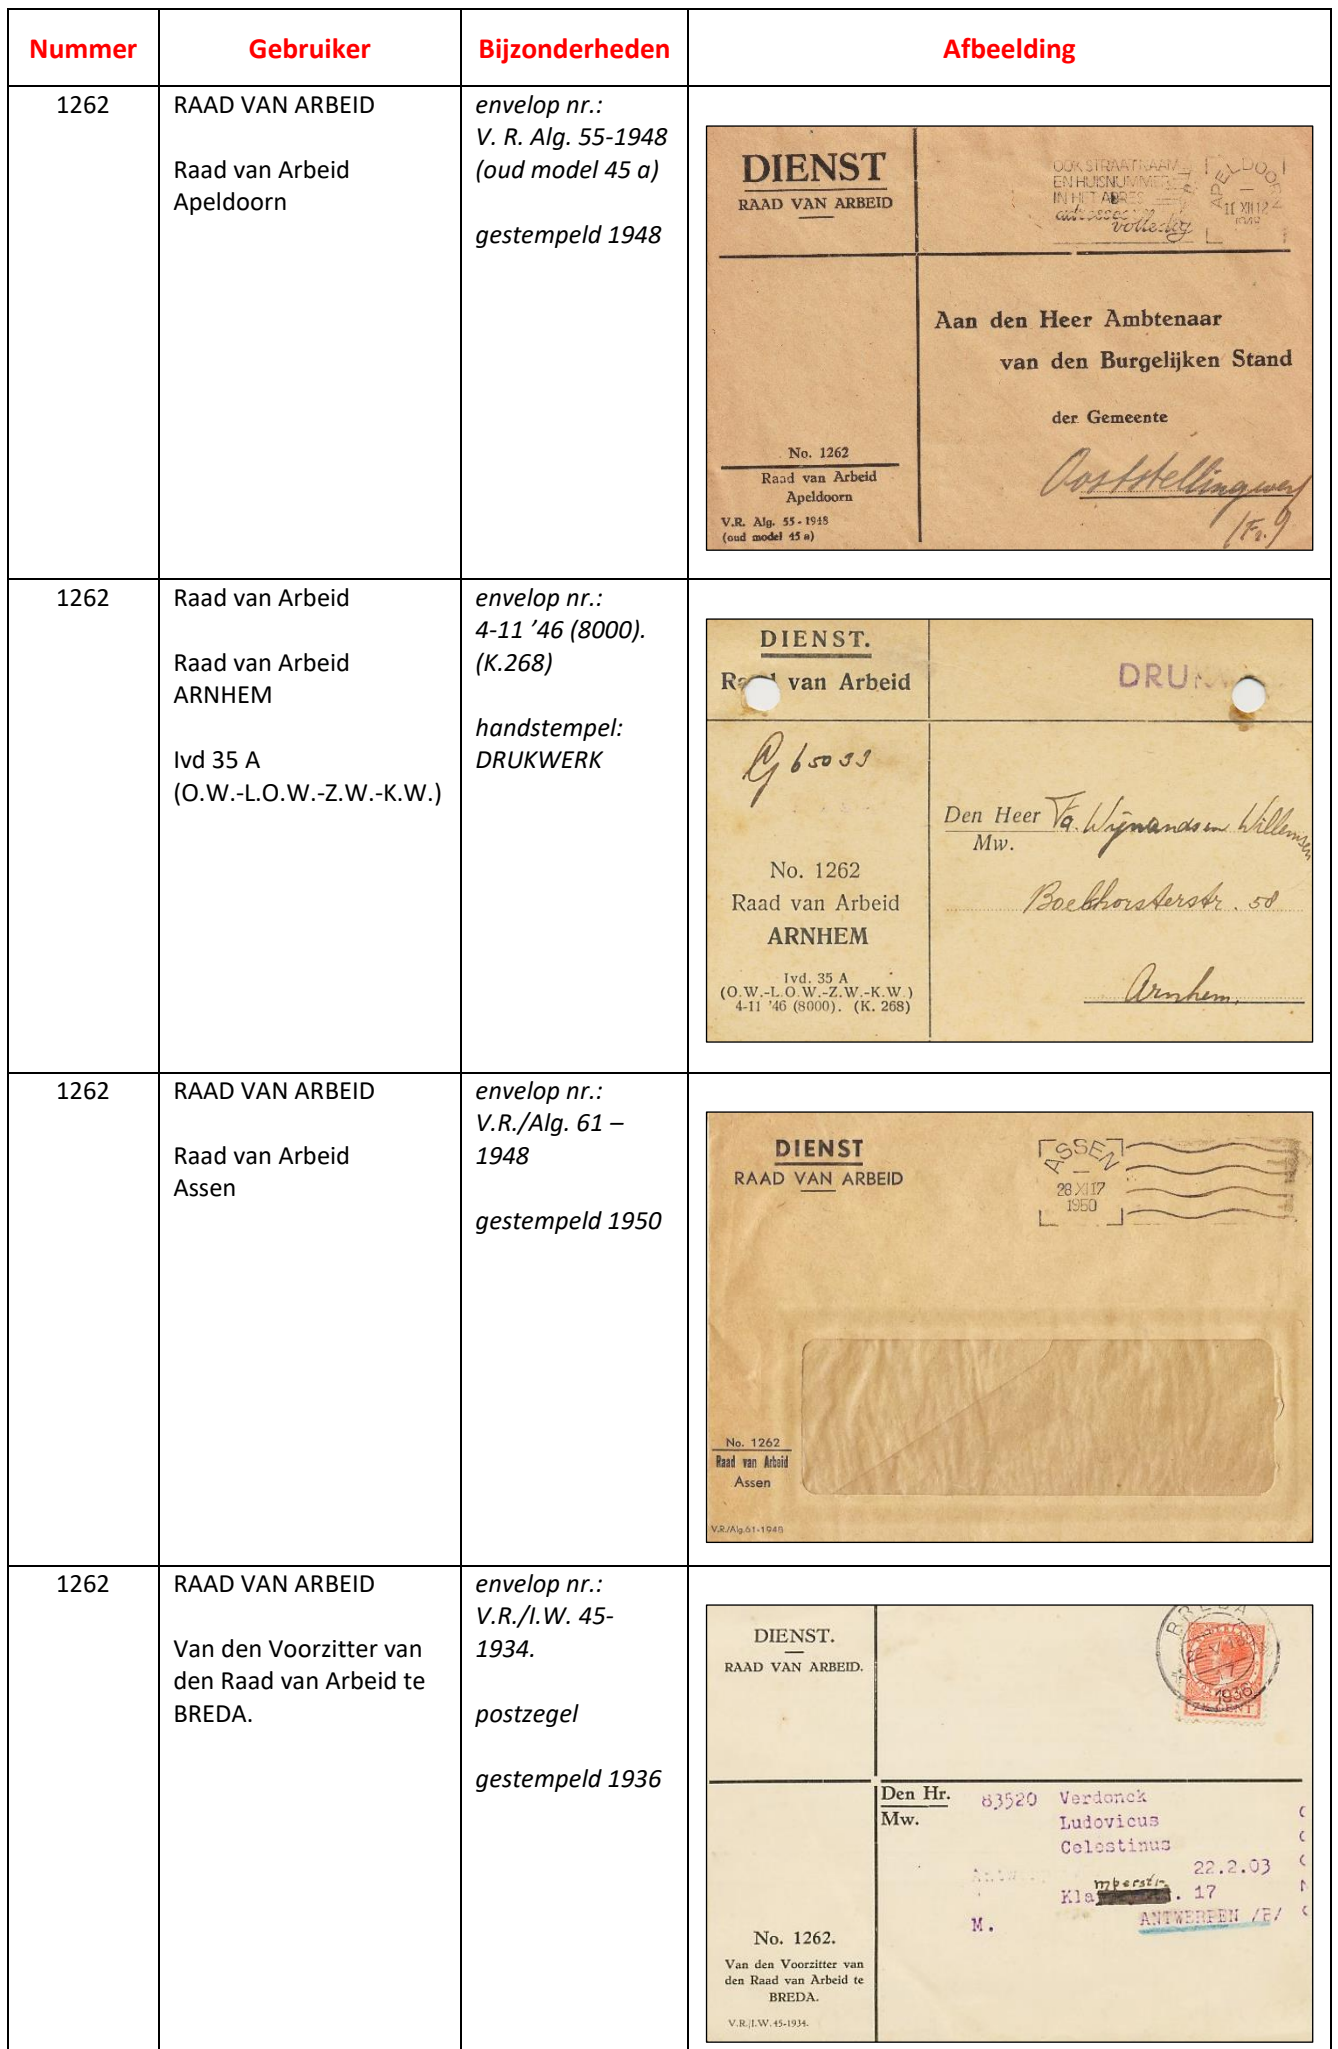 Nummer
Gebruiker
Bijzonderheden
Afbeelding
1262
RAAD VAN ARBEID
Raad van Arbeid
Apeldoorn
envelop nr.:
V. R. Alg. 55-1948
(oud model 45 a)
gestempeld 1948
DIENST
RAAD VAN ARBEID
OOK STRAATNAAM
EN HUISNUMMER
IN HET ADRES
volledig
APELDOORN
Aan den Heer Ambtenaar
van den Burgelijken Stand
der Gemeente
Ooststellingwerf
(Fr.)
No. 1262
Raad van Arbeid
Apeldoorn
V.R. Alg. 55 - 1948
(oud model 45 a)
1262
Raad van Arbeid
Raad van Arbeid
ARNHEM
Ivd 35 A
(O.W.-L.O.W.-Z.W.-K.W.)
envelop nr.:
4-11 ’46 (8000).
(K.268)
handstempel:
DRUKWERK
DIENST.
van Arbeid
DRU
65033
Den Heer Fa. Wijnandsen Willemsen
Mw.
Boekhorsterstr. 58
Arnhem.
No. 1262
Raad van Arbeid
ARNHEM
Ivd. 35 A
(O.W.-L.O.W.-Z.W.-K.W.)
4-11 '46 (8000). (K. 268)
1262
RAAD VAN ARBEID
Raad van Arbeid
Assen
envelop nr.:
V.R./Alg. 61 –
1948
gestempeld 1950
DIENST
RAAD VAN ARBEID
ASSEN
28 XI 17
1950
No. 1262
Raad van Arbeid
Assen
V.R./Alg.61-1948
1262
RAAD VAN ARBEID
Van den Voorzitter van
den Raad van Arbeid te
BREDA.
envelop nr.:
V.R./I.W. 45-
1934.
postzegel
gestempeld 1936
DIENST.
RAAD VAN ARBEID.
BREDA
1936
CENT
Den Hr.
Mw.
83520 Verdonck
Ludovicus
Celestinus
22.2.03
mperstr.
Kla . 17
M. ANTWERPEN /B/
No. 1262.
Van den Voorzitter van
den Raad van Arbeid te
BREDA.
V.R./I.W. 45-1934.